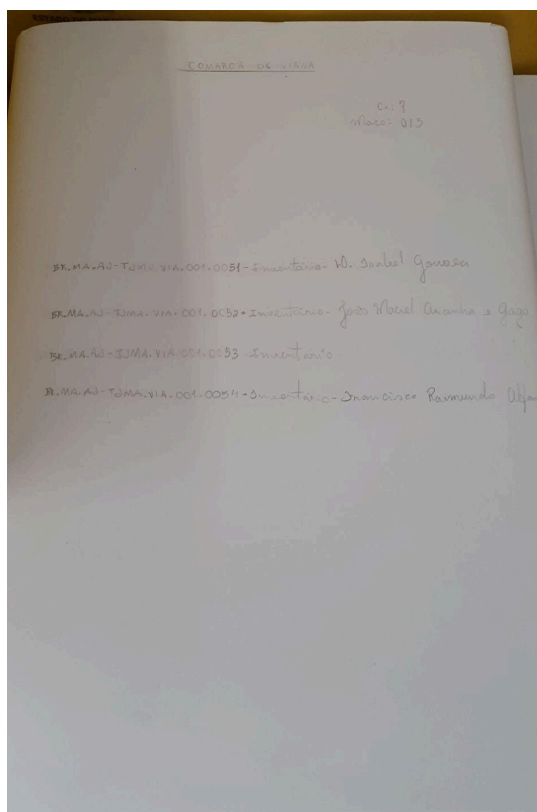 COMARCA DE VIANA
Cx: ?
Maço: 013
BR.MA.AJ-TJMA.VIA.001.0051-Inventário- D. Isabel
BR.MA.AJ-TJMA.VIA.001.0052-Inventário- João Maciel Aranha e Gago
BR.MA.AJ-TJMA.VIA.001.0053-Inventário-
BR.MA.AJ-TJMA.VIA.001.0054-Inventário-Francisco Raimundo